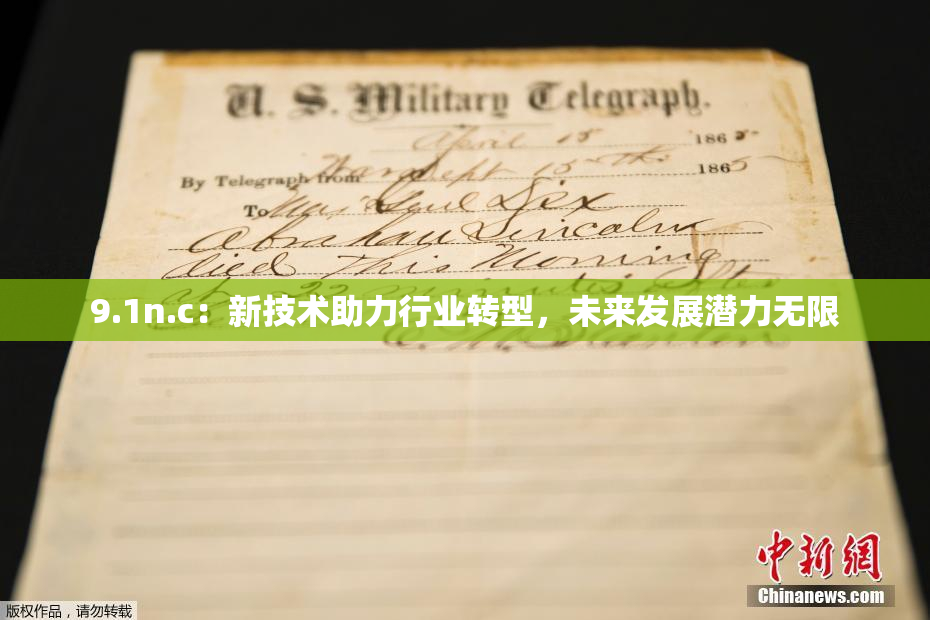 U. S. Military Telegraph.
April 15 1865
By Telegraph from War Dept 15 1865
To Maj Genl Dix
Abraham Lincoln
died This Morning
at 22 minutes after
9.1n.c：新技术助力行业转型，未来发展潜力无限
中新网
Chinanews.com
版权作品，请勿转载